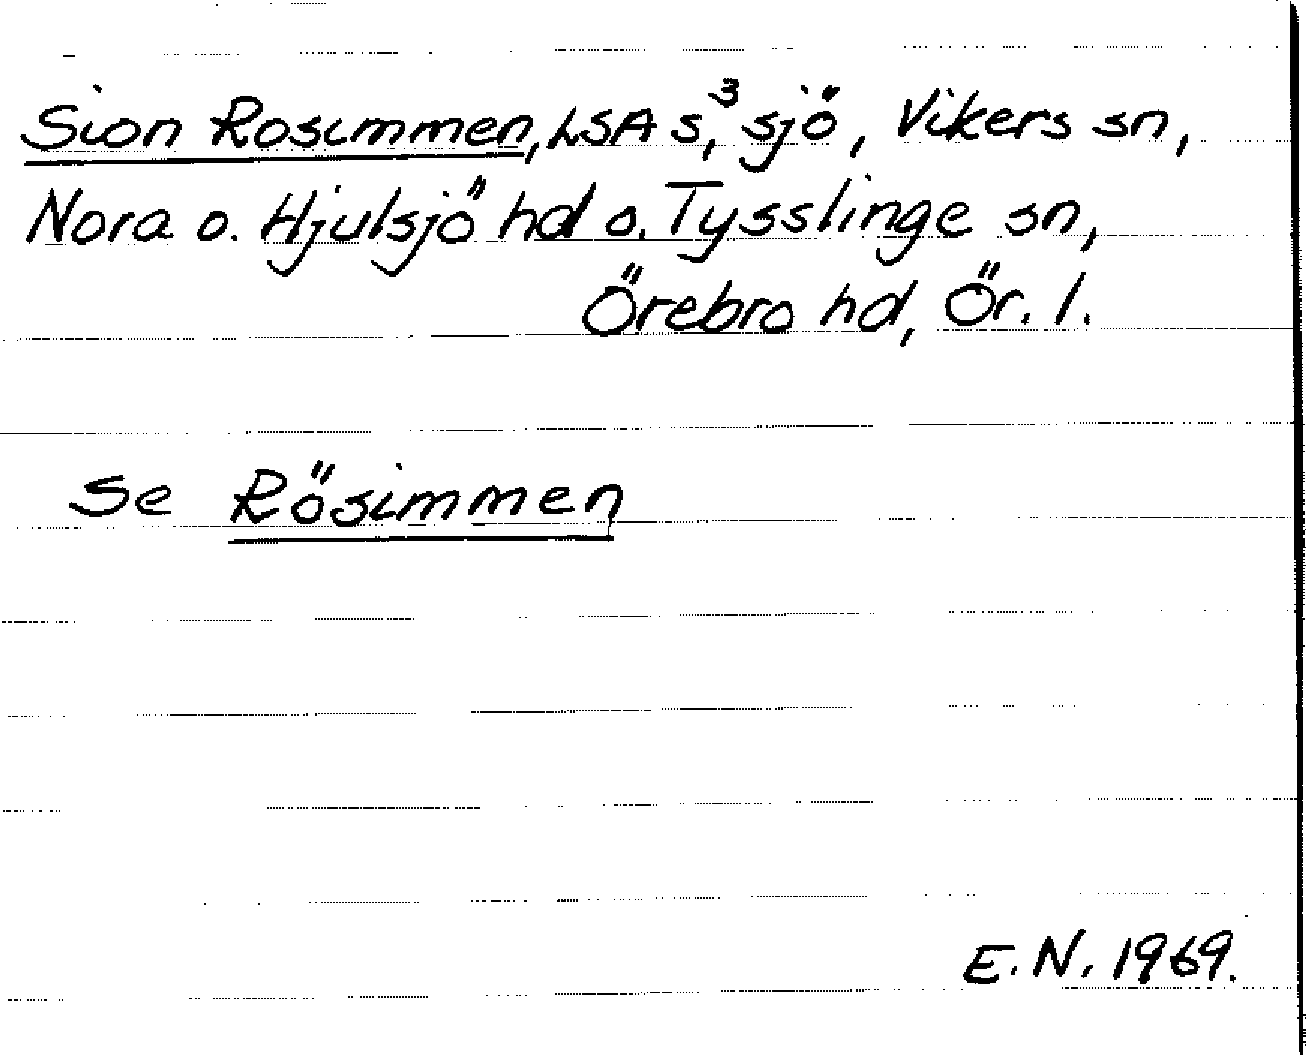 Sion Rosimmen, LSA s³, sjö, Vikers sn,
Nora o. Hjulsjö hd o. Tysslinge sn,
Örebro hd, Ör. l.
Se Rösimmen
E. N. 1969.